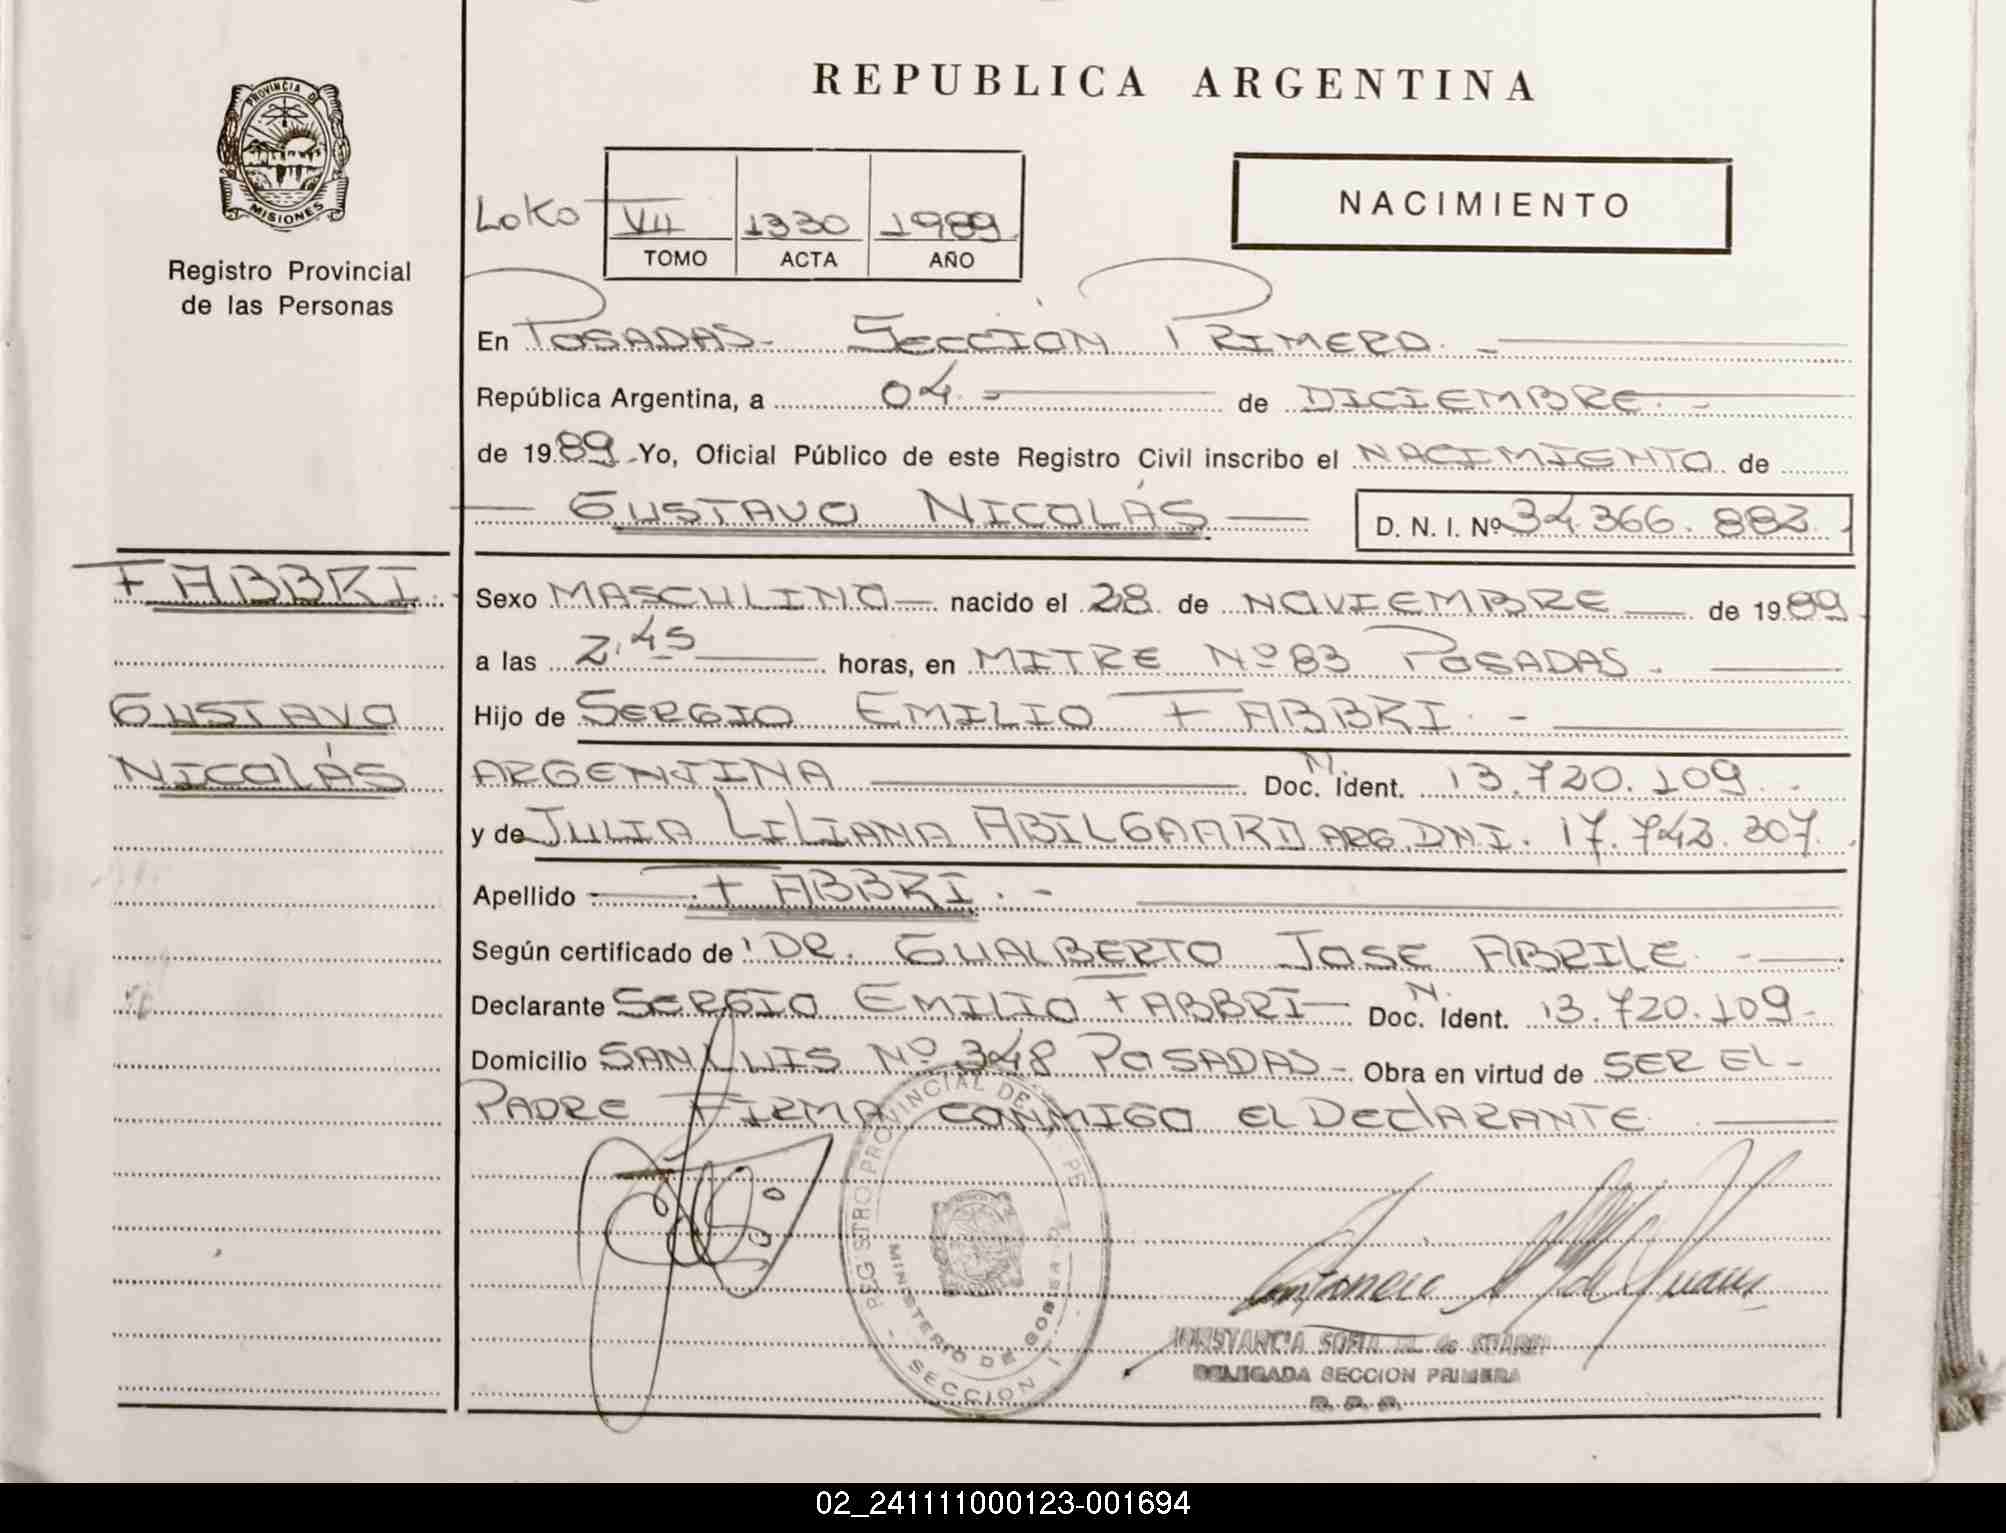 REPUBLICA ARGENTINA
PROVINCIA DE
MISIONES
Registro Provincial
de las Personas
NACIMIENTO
LOKO VII 1330 1989
TOMO ACTA AÑO
En POSADAS- SECCIÓN PRIMERA.-
República Argentina, a 04.- de DICIEMBRE.-
de 1989.-Yo, Oficial Público de este Registro Civil inscribo el NACIMIENTO de
— GUSTAVO NICOLÁS — D. N. I. Nº 34.366.882.-
FABBRI.-
GUSTAVO
NICOLÁS
Sexo MASCULINO — nacido el 28 de NOVIEMBRE — de 1989
a las 2,45 — horas, en MITRE Nº 83 POSADAS.-
Hijo de SERGIO EMILIO FABBRI.-
ARGENTINA — Doc. N. Ident. 13.720.109.-
y de JULIA LILIANA ABILGAARD ARG. DNI. 17.742.307.
Apellido — FABBRI.-
Según certificado de DR. GUALBERTO JOSE ABRILE.-
Declarante SERGIO EMILIO FABBRI— Doc. N. Ident. 13.720.109-
Domicilio SAN LUIS Nº 348 POSADAS- Obra en virtud de SER EL-
PADRE FIRMA CONMIGO EL DEClARANTE
REGISTRO PROVINCIAL DE PE
MINISTERIO DE GOBIERNO
SECCION I
CONSTANCIA SOFIA M. de SUAREZ
DELEGADA SECCION PRIMERA
R. P. P.
02_241111000123-001694